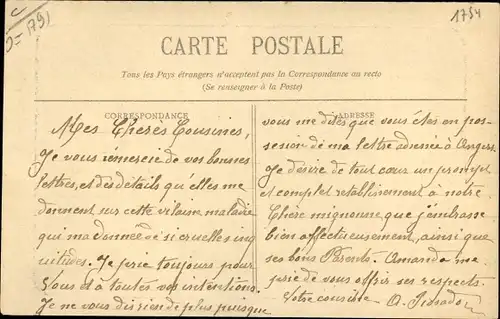 D=1791
1754
CARTE POSTALE
Tous les Pays étrangers n'acceptent pas la Correspondance au recto
(Se renseigner à la Poste)
CORRESPONDANCE
Mes Chères Cousines,
Je vous remercie de vos bonnes
lettres, et des détails qu'elles me
donnent sur cette vilaine maladie
qui m'a donnée de si cruelles inq
uiétudes. Je prie toujours pour
Vous et à toutes vos intentions.
Je ne vous dis rien de plus puisque
ADRESSE
vous me dites que vous êtes en pos-
session de ma lettre adressée à Angers.
Je désire de tout cœur un prompt
et complet rétablissement à notre
Chère mignonne que j'embrasse
bien affectueusement, ainsi que
ses bons Parents. Amanda me
prie de vous offrir ses respects.
Votre cousine